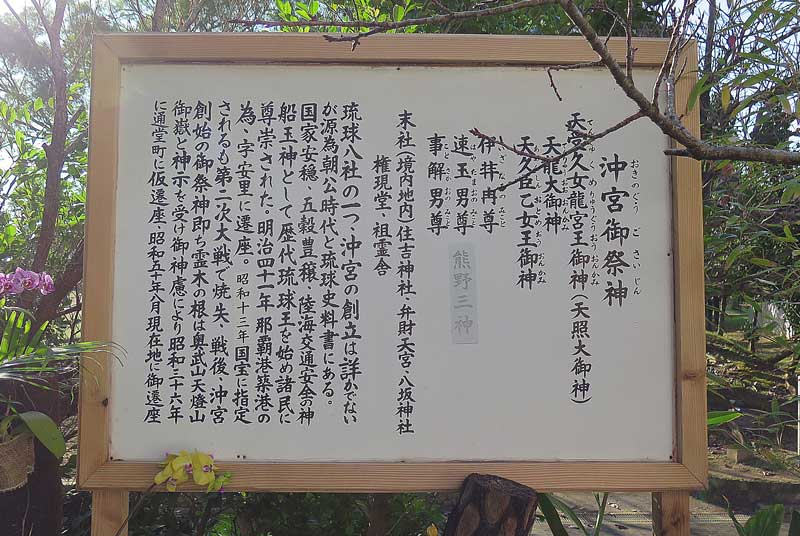 沖宮御祭神
おきのぐう ご さいじん
天宮久女龍宮王御神(天照大御神)
天龍大御神
天久臣乙女王御神
伊弉冉尊
速玉男尊
事解男尊
熊野三神
末社(境内地内)住吉神社・弁財天宮・八坂神社
権現堂・祖霊舎
琉球八社の一つ、沖宮の創立は詳かでない
が源為朝公時代と琉球史料書にある。
国家安穏、五穀豊穣、陸海交通安全の神
船玉神として歴代琉球王を始め諸民に
尊崇された。明治四十一年那覇港築港の
為、字安里に遷座。昭和十三年国宝に指定
されるも第二次大戦で焼失、戦後、沖宮
創始の御祭神即ち霊木の根は奥武山天燈山
御嶽と神示を受け御神慮により昭和三十六年
に通堂町に仮遷座、昭和五十年八月現在地に御遷座